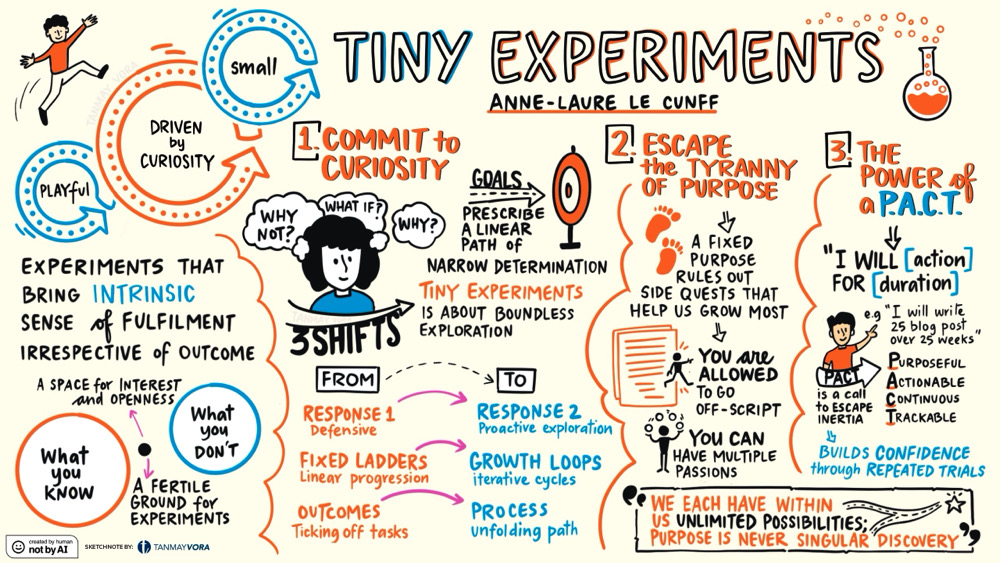 TINY EXPERIMENTS
ANNE-LAURE LE CUNFF
small
DRIVEN
by
CURIOSITY
PLAYful
TANMAY VORA
EXPERIMENTS THAT
BRING INTRINSIC
SENSE of FULFILMENT
IRRESPECTIVE of OUTCOME
A SPACE for INTEREST
and OPENNESS
What
you
KNOW
What
you
DON'T
A FERTILE
GROUND for
EXPERIMENTS
1. COMMIT to
CURIOSITY
WHY
NOT?
WHAT IF?
WHY?
GOALS
PRESCRIBE
A LINEAR
PATH OF
NARROW DETERMINATION
TINY EXPERIMENTS
IS ABOUT BOUNDLESS
EXPLORATION
3 SHIFTS
FROM
TO
RESPONSE 1
Defensive
RESPONSE 2
Proactive exploration
FIXED LADDERS
Linear progression
GROWTH LOOPS
iterative cycles
OUTCOMES
Ticking off tasks
PROCESS
unfolding path
2. ESCAPE
the TYRANNY
OF PURPOSE
A FIXED
PURPOSE
RULES OUT
SIDE QUESTS THAT
HELP US GROW MOST
YOU are
ALLOWED
TO GO
OFF-SCRIPT
YOU CAN
HAVE MULTIPLE
PASSIONS
3. THE
POWER of
a P.A.C.T.
"I WILL [action]
FOR [duration]
e.g "I will write
25 blog post
over 25 weeks"
PACT
is a call
to ESCAPE
INERTIA
PURPOSEFUL
ACTIONABLE
CONTINUOUS
TRACKABLE
BUILDS CONFIDENCE
through REPEATED TRIALS
"WE EACH HAVE WITHIN
US UNLIMITED POSSIBILITIES;
PURPOSE IS NEVER SINGULAR DISCOVERY"
created by human
not by AI
SKETCHNOTE BY: TANMAYVORA